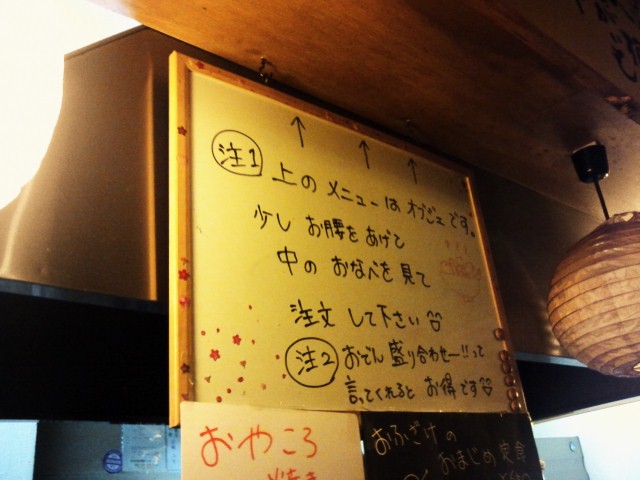 注1 上のメニューはオブジェです。
少しお腰をあげて
中のおなべを見て
注文して下さい
注2 おでん盛り合わせー!!って
言ってくれるとお得です
おやころ
焼き
おふざけの
おまじめ定食